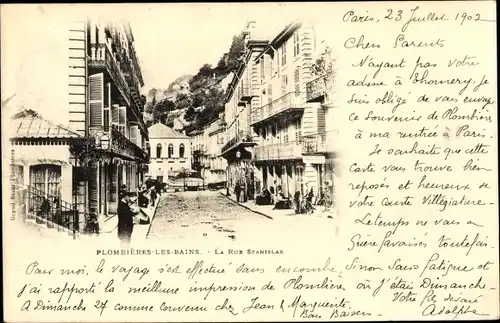 Paris, 23 Juillet 1902
Chers Parents
N'ayant pas votre
adresse à Thomery, je
suis obligé de vous envoyer
ce Souvenir de Plombières
à ma rentrée à Paris.
Je souhaite que cette
Carte vous trouve bien
reposés et heureux de
votre Courte Villégiature.
Le temps ne vous a
Guère favorisés toutefois
PLOMBIÈRES-LES-BAINS. - LA RUE STANISLAS
Pour moi, le voyage s'est effectué sans encombre, si non sans fatigue et
j'ai rapporté la meilleure impression de Plombières où j'étais Dimanche -
à Dimanche 27 comme convenu chez Jean & Marguerite. Votre fils dévoué
Bons Baisers Adolphe